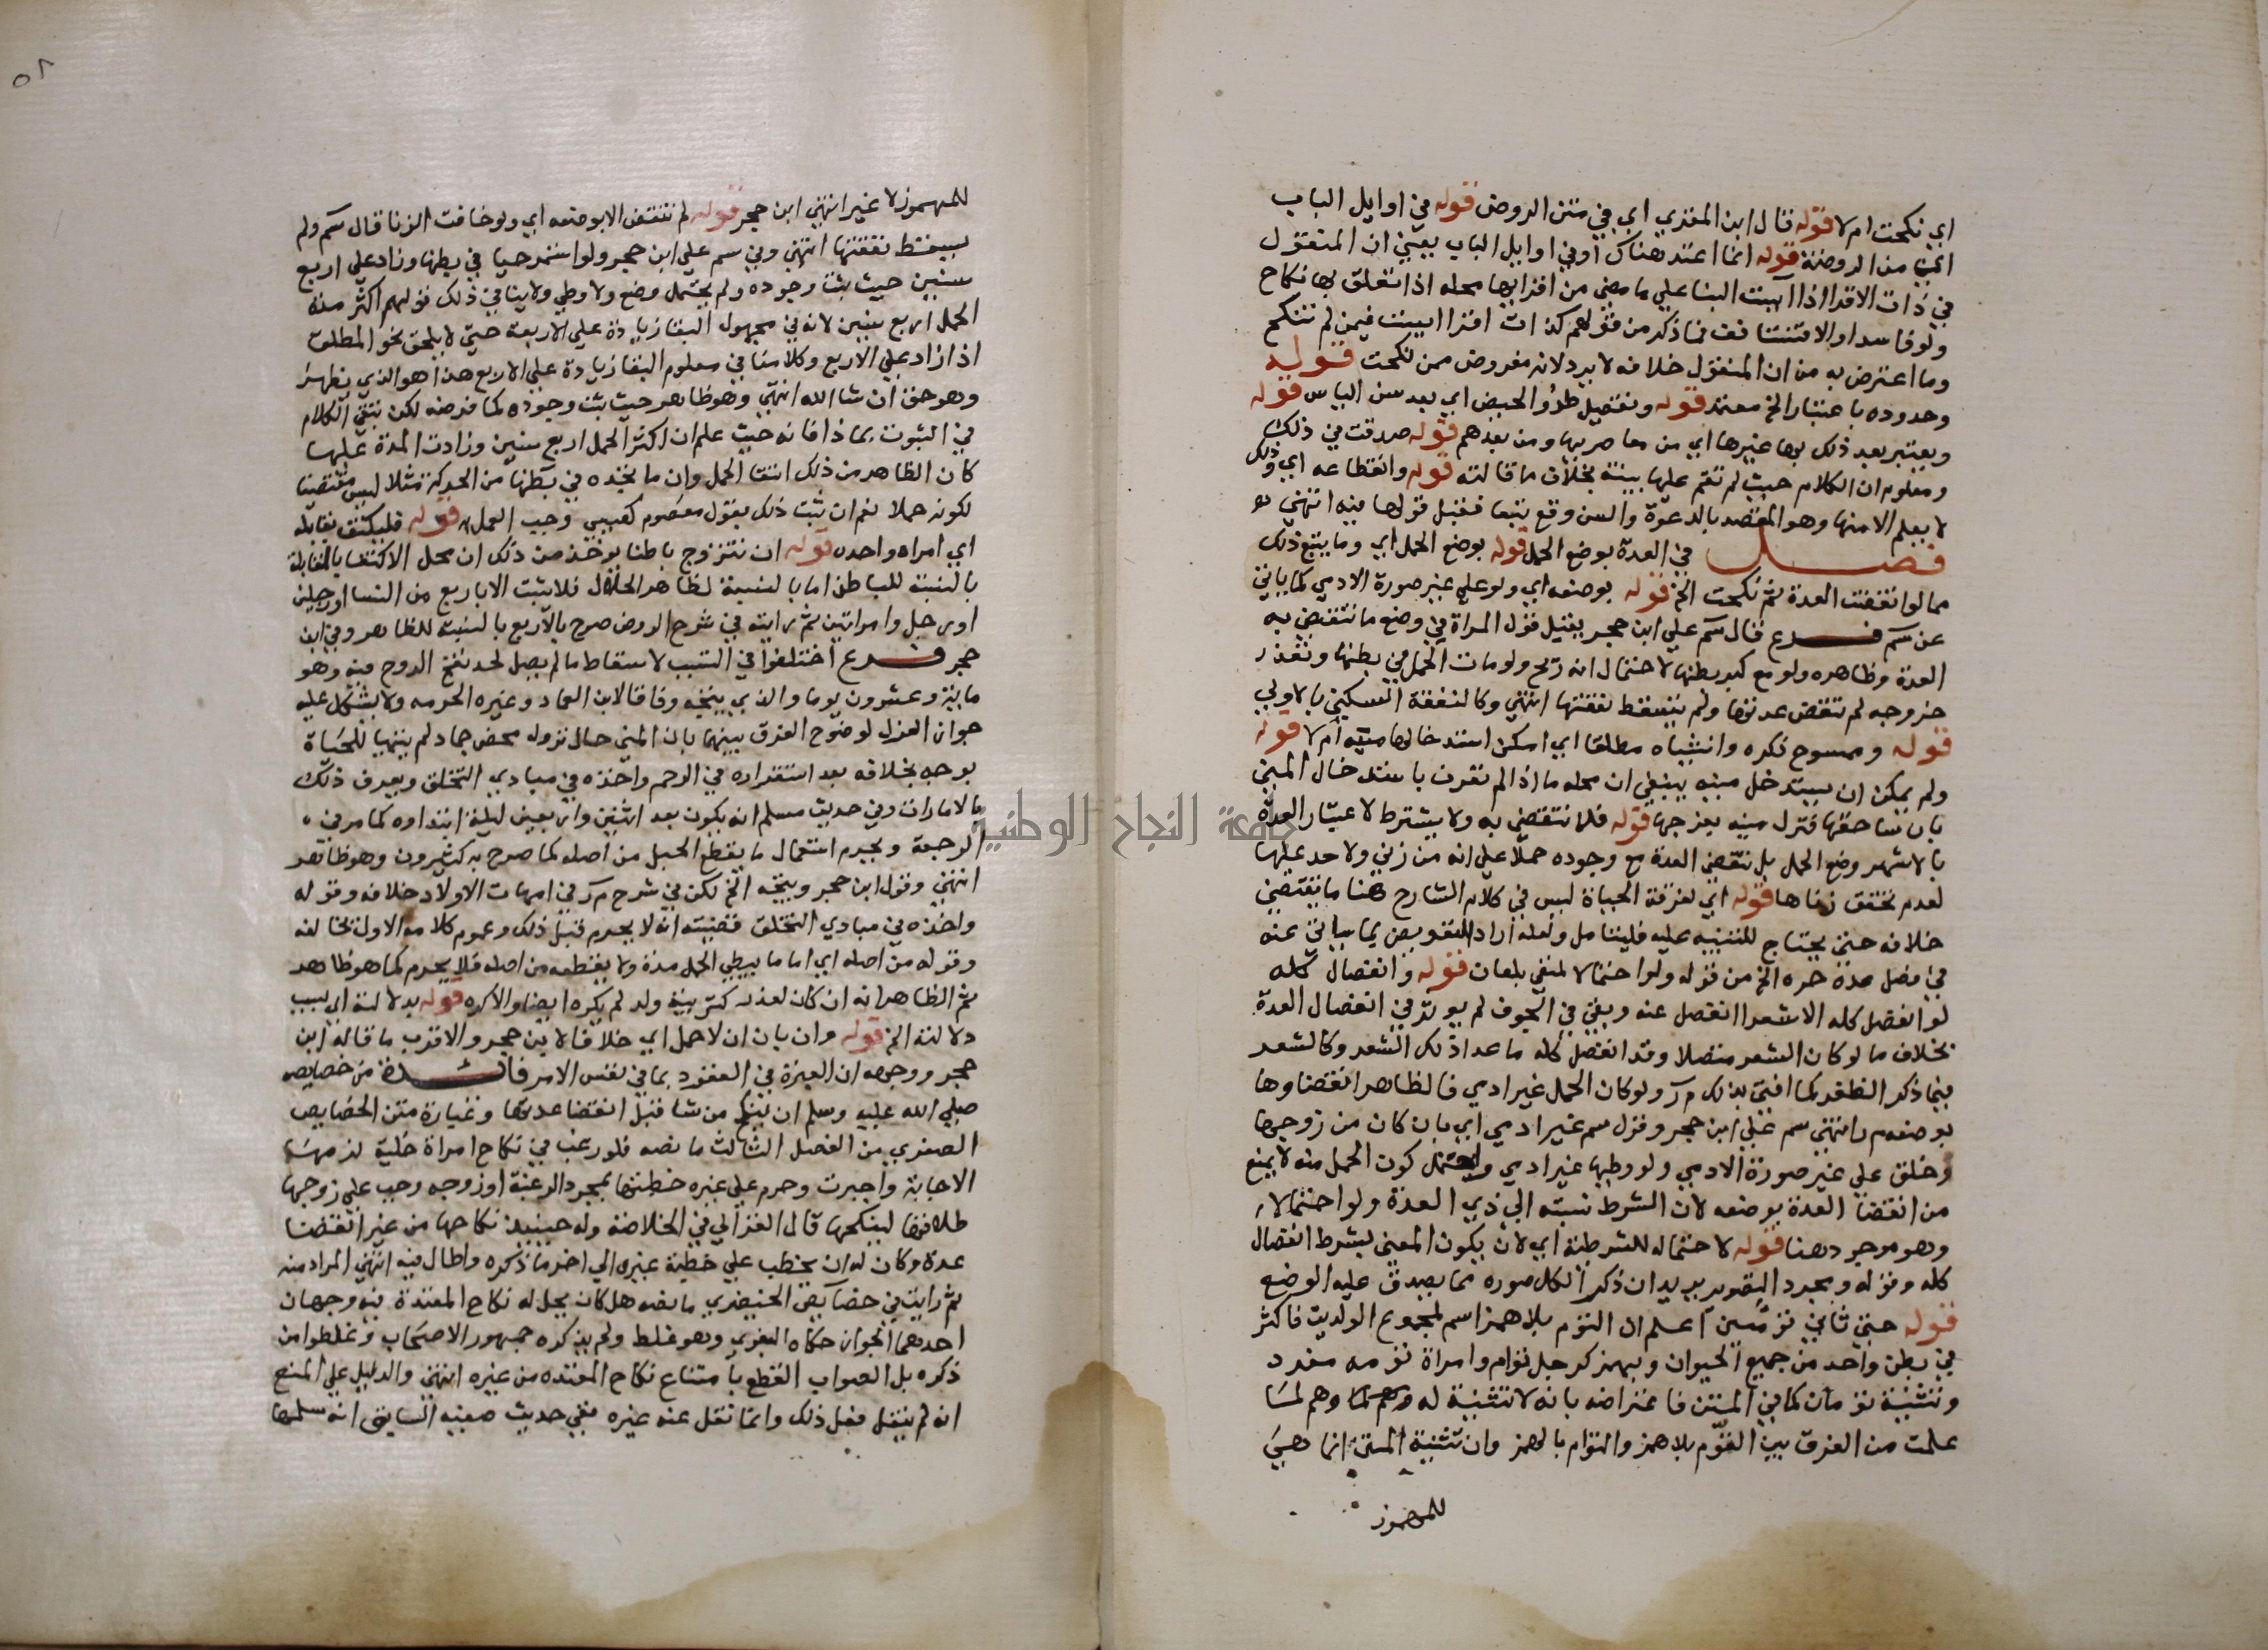 اي نكحت ام لا قوله قال ابن المقري اي في متن الروض قوله في اوايل الباب
اي من الروضة قوله انما اعتد هناك اوفي اوايل الباب يعني ان المنقول
في ذات الاقرا اذا ايست البنا علي ما مضي من اقرايها محله اذا تعلق بها نكاح
ولو فاسدا والا فتستانف فما ذكر من قولهم كذات اقرا ايست فيمن لم تنكح
وما اعترض به من ان المنقول خلافه لا يرد لانه مفروض ممن نكحت قوله
وحدوده باعتبار الخ معتمد قوله وتفصيل طرو الحيض اي بعد سن الياس قوله
ويعتبر بعد ذلك بها غيرها اي من معاصريها ومن بعدهم قوله صدقت في ذلك
ومعلوم ان الكلام حيث لم تقم عليها بينة بخلاف ما قالته قوله وانقطاعه اي وذلك
لا يعلم الا منها وهو المقصد بالدعوة والسن وقع تبعا فقبل قولها فيه انتهي
فصل في العدة بوضع الحمل قوله بوضع الحمل اي وما يتبع ذلك
مما لو انقضت العدة ثم نكحت الخ قوله بوضعه اي ولو علي غير صورة الادمي كما ياتي
عن سم فرع قال سم علي ابن حجر يقبل قول المراة في وضع ما تنقضي به
العدة وظاهره ولو مع كبر بطنها لاحتمال انه ريح ولو مات الحمل في بطنها وتعذر
خروجه لم تنقض عدتها ولم تسقط نفقتها انتهي وكالنفقة السكني بالاولي
قوله وممسوح ذكره وانثياه مطلقا اي امكن استدخالها منيه ام لا قوله
ولم يمكن ان يستدخل منيه ينبغي ان محله ما اذا لم تعرف باستدخال المني
بان ساحقها فنزل منيه بفرجها قوله فلا تنقضي به ولا يشترط لاعتبار العدة
بالاشهر وضع الحمل بل تنقضي العدة مع وجوده حملا علي انه من زني ولا حد عليها
لعدم تحقق زناها قوله اي لفرقة الحياة ليس في كلام الشارح هنا ما يقتضي
خلافه حتي يحتاج للتنبيه عليه فليتامل ولعله اراد التعويض بما ياتي عنه
في فصل عدة حره الخ من قوله ولو احتمالا لمنفي بلعان قوله وانفصال كله
لو انفصل كله الا شعرا انفصل عنه وبقي في الجوف لم يوثر في انفصال العدة
بخلاف ما لو كان الشعر متصلا وقد انفصل كله ما عدا ذلك الشعر وكالشعر
فيما ذكر الظفر كما افتي بذلك م ر ولو كان الحمل غير ادمي فالظاهر انقضاوها
بوضعه م ر انتهي سم علي ابن حجر وقول سم غير ادمي اي بان كان من زوجها
وخلق علي غير صورة الادمي ولو وطيها غير ادمي واحتمل كون الحمل منه لا يمنع
من انقضا العدة بوضعه لان الشرط نسبته الي ذي العدة ولو احتمالا
وهو موجود هنا قوله لاحتماله للشرطية اي لان يكون المعني بشرط انفصال
كله وقوله ومجرد التصوير يريد ان ذكر الكل صوره مما يصدق عليه الوضع
قوله حتي ثاني تومين اعلم ان التوم بلا همز اسم لمجموع الولدين فاكثر
في بطن واحد من جميع الحيوان وبهمز كرجل توام وامراة تومه مفرد
وتثنيته تومان كما في المتن فاعتراضه بانه لا تثنية له وهم لما
علمت من الفرق بين التوم بلا همز والتوام بالهمز وان تثنية المتن انما هي
للمهموز
٥٨
للمهموز لا غير انتهي ابن حجر قوله لم تنقض الا بوضعه اي ولو خافت الزنا قال سم ولم
يسقط نفقتها انتهي وفي سم علي ابن حجر ولو استمر حيا في بطنها وزاد علي اربع
سنين حيث ثبت وجوده ولم يحتمل وضع ولا وطي ولا ينافي ذلك قولهم اكثر مدة
الحمل اربع سنين لانه في مجهول البقا زيادة علي الاربعة حتي لا يلحق نحو المطلق
اذا زاد علي الاربع وكلامنا في معلوم البقا زيادة علي الاربع هذا هو الذي يظهر
وهو حق ان شا الله انتهي وهو ظاهر حيث ثبت وجوده كما فرضه لكن بقي الكلام
في الثبوت بماذا فانه حيث علم ان اكثر الحمل اربع سنين وزادت المدة عليها
كان الظاهر من ذلك انتفا الحمل وان ما يجده في بطنها من الحركة مثلا ليس مقتضيا
لكونه حملا نعم ان ثبت ذلك بقول معصوم كعيسي وجب العمل به قوله فليكتف بقابلة
اي امراه واحده قوله ان تتزوج باطنا يوخذ من ذلك ان محل الاكتفا بالقابلة
بالنسبة للباطن اما بالنسبة لظاهر الحال فلا يثبت الا باربع من النسا او رجلين
او رجل وامراتين ثم رايته في شرح الروض صرح بالاربع بالنسبة للظاهر وفي ابن
حجر فرع اختلفوا في التسبب لاسقاط ما لم يصل لحد نفخ الروح فيه وهو
ماية وعشرون يوما والذي يتجه وفاقا لابن العماد وغيره الحرمه ولا يشكل عليه
جواز العزل لوضوح الفرق بينهما بان المني حال نزوله محض جماد لم يتهيا للحياة
بوجه بخلافه بعد استقراره في الرحم واخذه في مبادي التخلق ويعرف ذلك
بالامارات وفي حديث مسلم انه يكون بعد اثنين واربعين ليلة ابتداوه كما مر في
الرجعة ويحرم استعمال ما يقطع الحبل من اصله كما صرح به كثيرون وهو ظاهر
انتهي وقول ابن حجر ويتجه الخ لكن في شرح م ر في امهات الاولاد خلافه وقوله
واخذه في مبادي التخلق قضيته انه لا يحرم قبل ذلك وعموم كلامه الاول يخالفه
وقوله من اصله اي اما ما يبطي الحمل مدة ولا يقطعه من اصله فلا يحرم كما هو ظاهر
ثم الظاهر انه ان كان لعذر كتربية ولد لم يكره ايضا والا كره قوله بدلالته اي بسبب
دلالته الخ قوله وان بان ان لا حمل اي خلافا لابن حجر والاقرب ما قاله ابن
حجر ووجهه ان العبرة في العقود بما في نفس الامر فائدة من خصايصه
صلي الله عليه وسلم ان ينكح من شا قبل انقضا عدتها وعبارة متن الخصايص
الصغري من الفصل الثالث ما نصه فلو رغب في نكاح امراة خلية لزمها
الاجابة واجبرت وحرم علي غيره خطبتها بمجرد الرغبة او زوجه وجب علي زوجها
طلاقها لينكحها قال الغزالي في الخلاصة وله حينيذ نكاحها من غير انقضا
عدة وكان له ان يخطب علي خطبة غيره الي اخر ما ذكره واطال فيه انتهي المراد منه
ثم رايت في خصايص الخيضري ما نصه هل كان يحل له نكاح المعتدة فيه وجهان
احدهما الجواز حكاه البغوي وهو غلط ولم يذكره جمهور الاصحاب وغلطوا من
ذكره بل الصواب القطع بامتناع نكاح المعتده من غيره انتهي والدليل علي المنع
انه لم ينقل فعل ذلك وانما نقل عنه غيره ففي حديث صفيه السابق انه سلمها